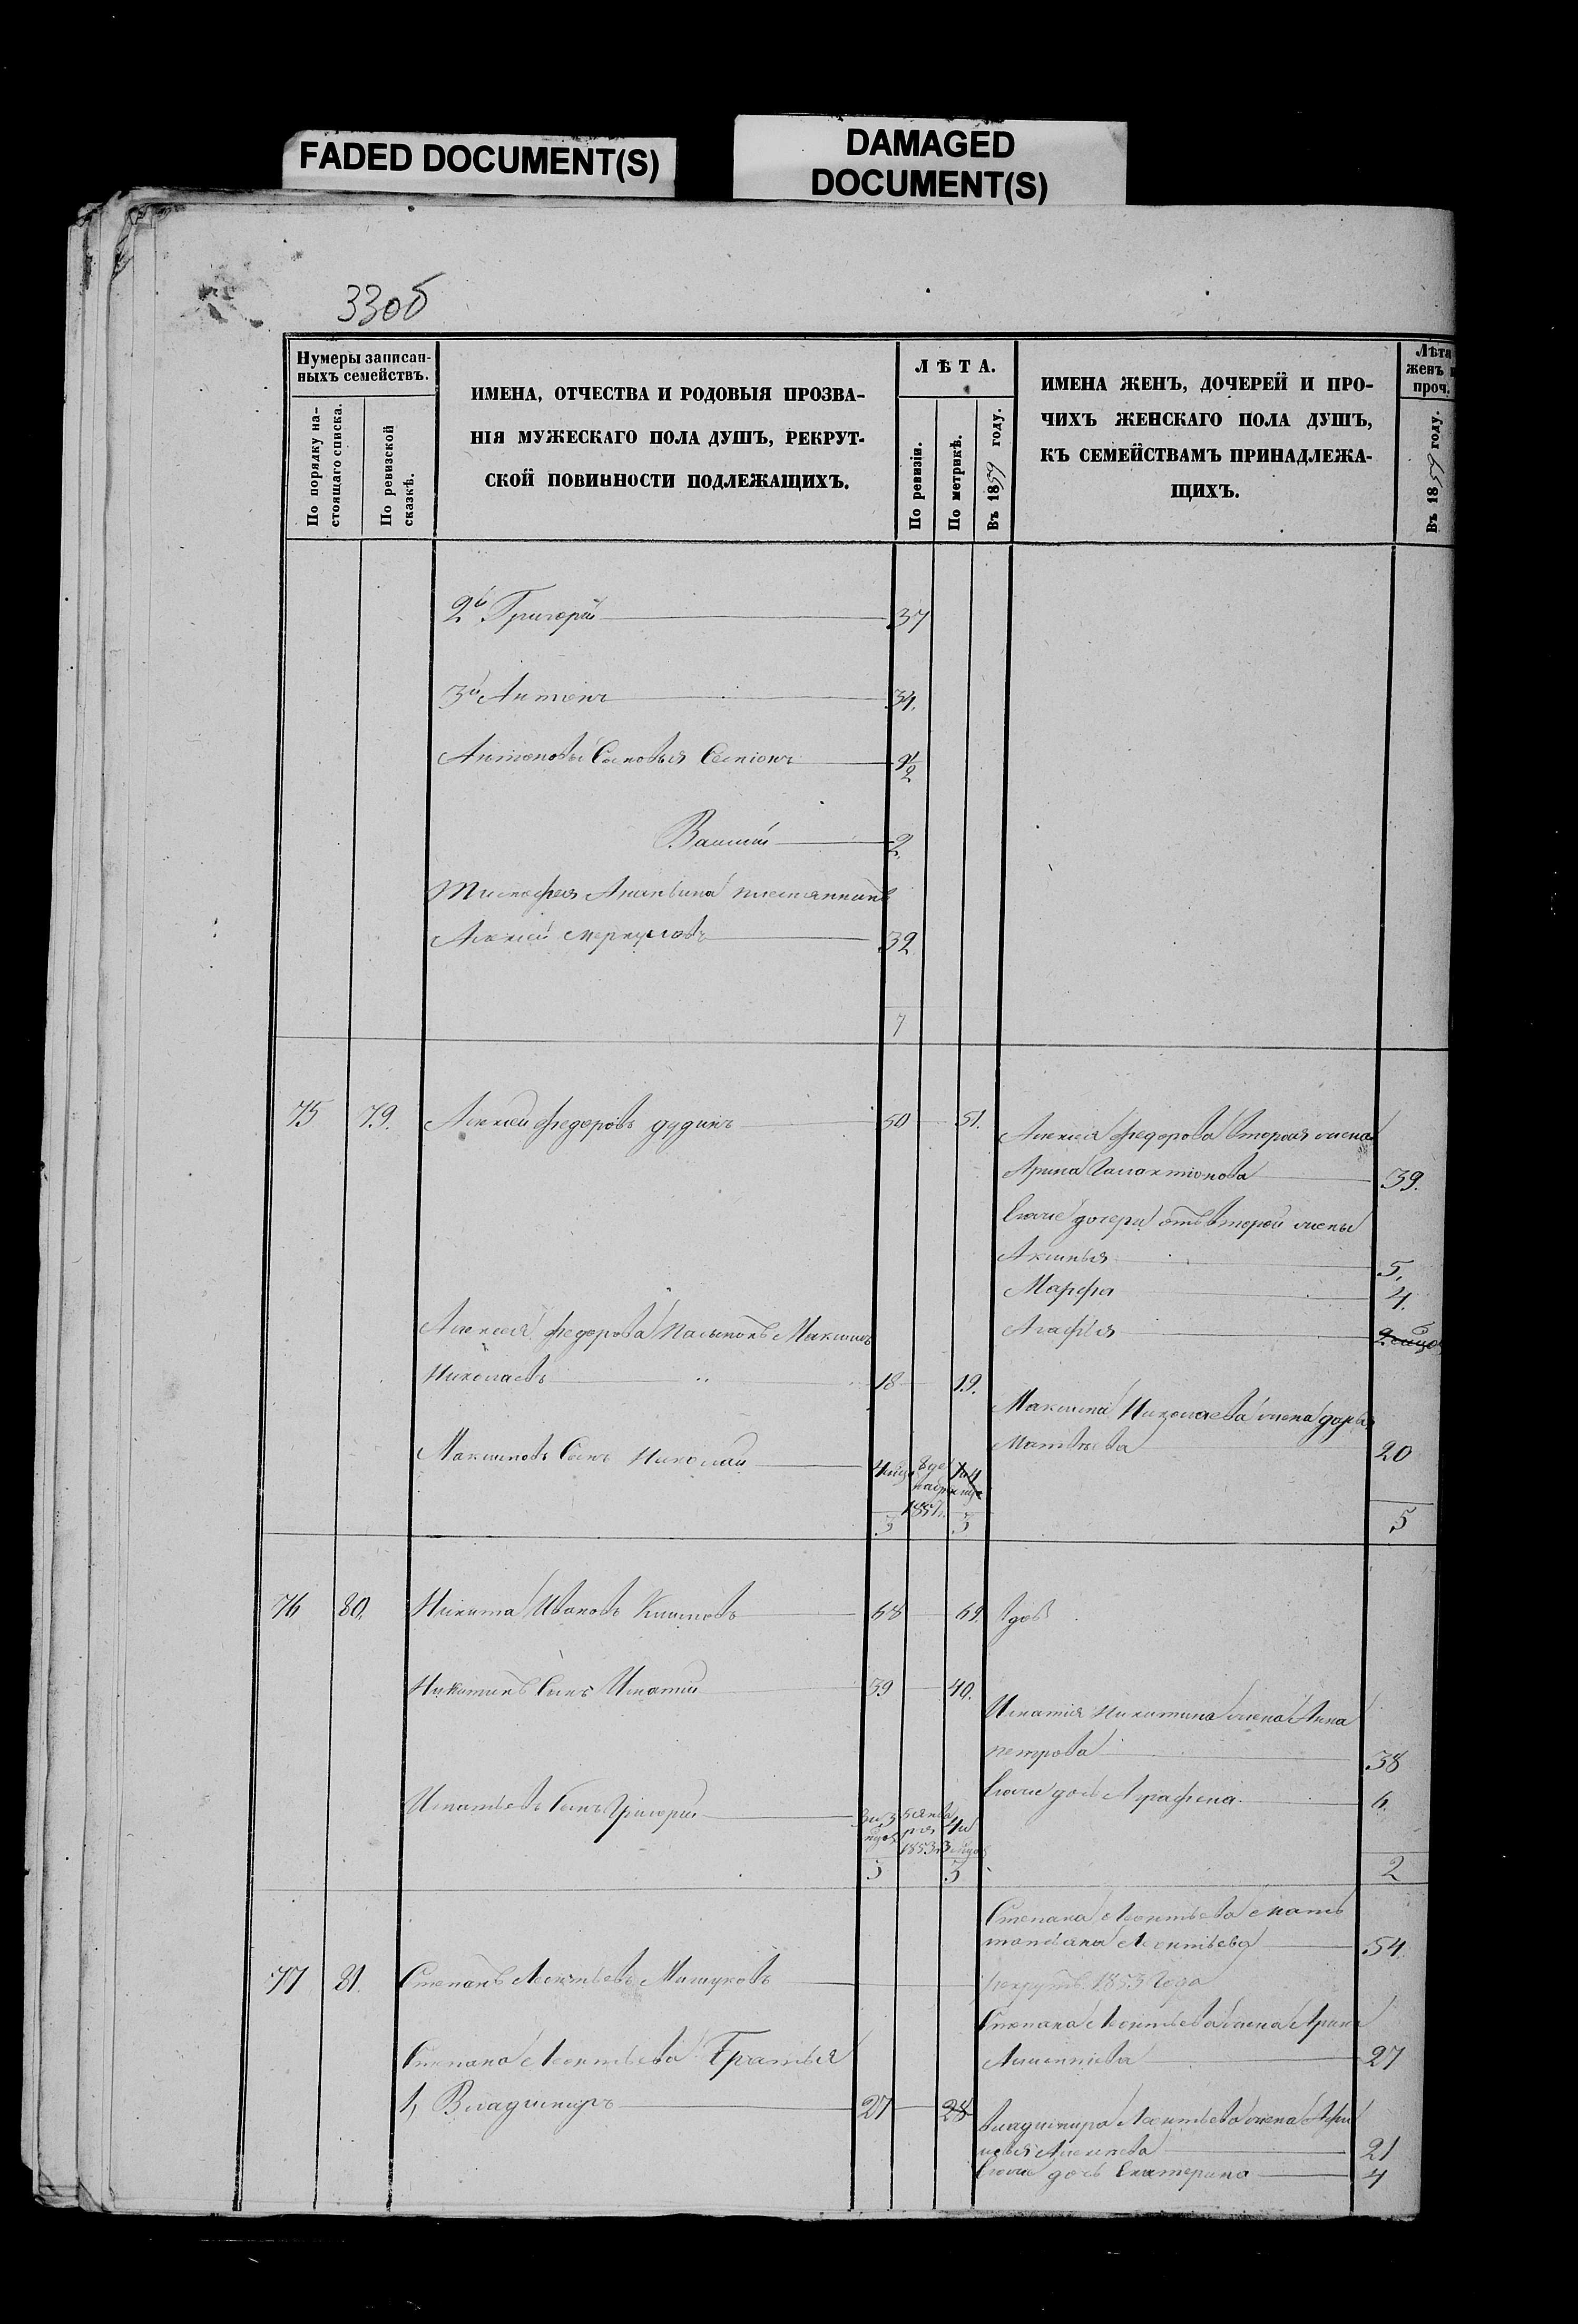 FADED DOCUMENT(S)
DAMAGED
DOCUMENT(S)
33об
Нумеры записан-
ныхъ семействъ.
По порядку на-
стоящаго списка.
По ревизской
сказкѣ.
ИМЕНА, ОТЧЕСТВА И РОДОВЫЯ ПРОЗВА-
НІЯ МУЖЕСКАГО ПОЛА ДУШЪ, РЕКРУТ-
СКОЙ ПОВИННОСТИ ПОДЛЕЖАЩИХЪ.
ЛѢТА.
По ревизіи.
По метрикѣ.
Въ 1859 году.
ИМЕНА ЖЕНЪ, ДОЧЕРЕЙ И ПРО-
ЧИХЪ ЖЕНСКАГО ПОЛА ДУШЪ,
КЪ СЕМЕЙСТВАМЪ ПРИНАДЛЕЖА-
ЩИХЪ.
Лѣта
женъ и
проч.
Въ 1859 году.
2й Григорій 37
3й Антонъ 34.
Антоновы Сыновья
2.
Ананьина племянникъ
Алексей Меркуловъ 32
7
75 79. Алексей Федоровъ Дудинъ 50 51.
Алексея Федорова вторая жена
Арина Галактионова 39.
Ево же дочери отъ второй жены
Аксинья 5.
Марфа 4.
Агафья
Алексея Федорова пасынокъ Максимъ
Николаевъ 18 19.
Максима Николаева жена Дарья
Матвѣева 20
Максимовъ Сынъ Николай
1857
3 3 5
76 80. Никита Ивановъ Климовъ 68 69. Вдовъ
Никитинъ Сынъ Игнатій 39 40.
Игнатія Никитина жена Анна
Петрова 38
Ево же дочь Аграфена 6.
Игнатьевъ Сынъ Григорій
1853
3 3 2
Степана Леонтьева мать
Леонтьева 54.
77 81. Степанъ Леонтьевъ
рекрутъ 1853 года
Степана Леонтьева жена Арина
27
Степана Леонтьева Братья
1, Владимиръ 27 28
Владимира Леонтьева жена
21
Ево же дочь Екатерина 4